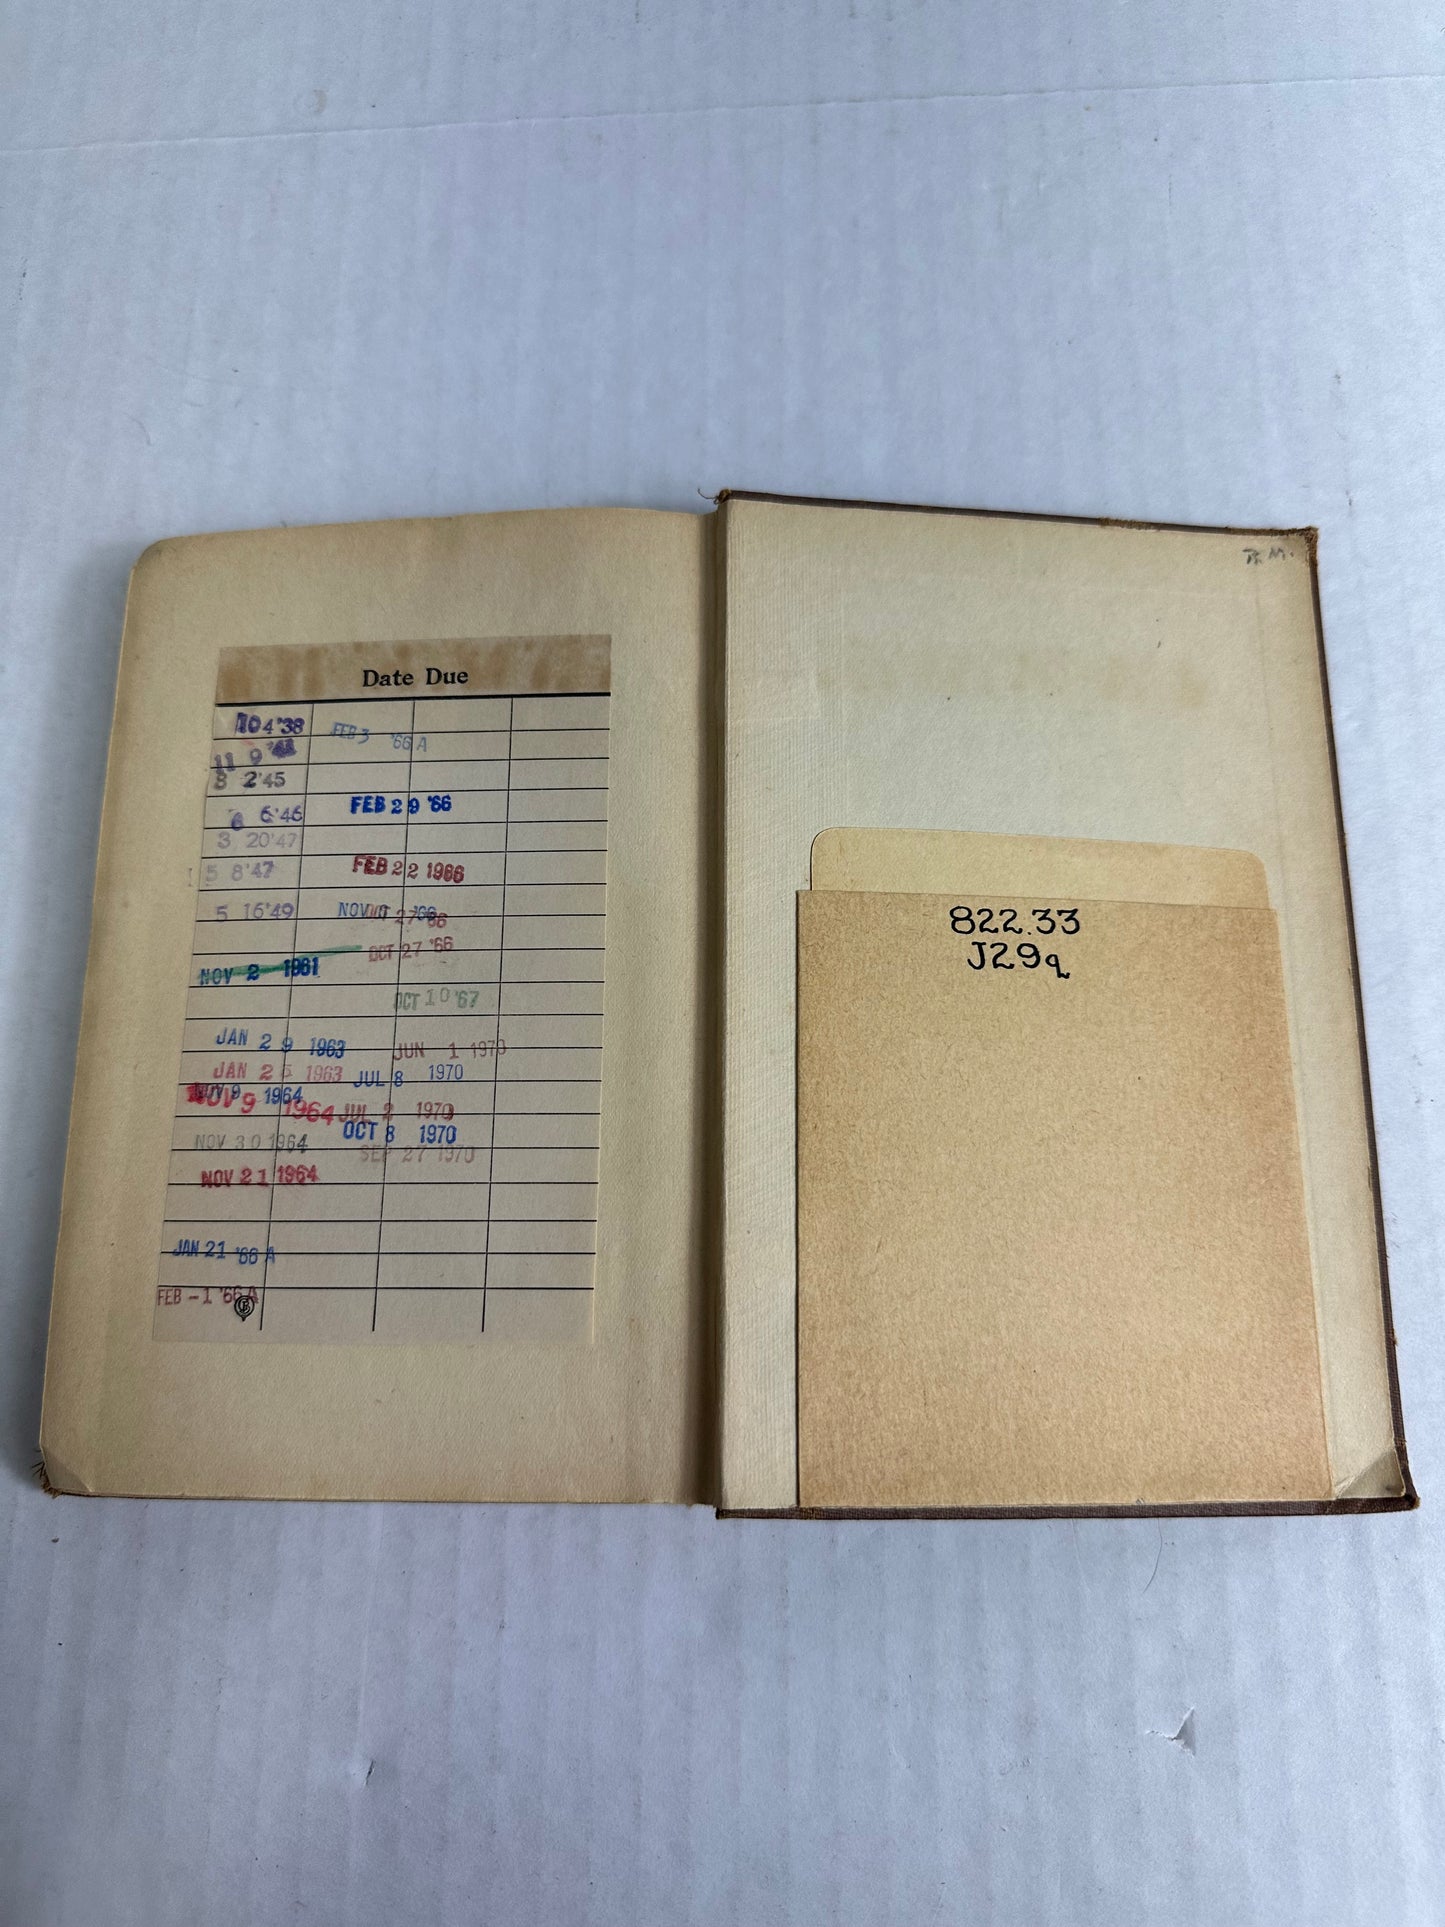 Date Due
10 4 '38
11 9 '41
8 2 '45
6 6 '46
3 20 '47
5 8 '47
5 16 '49
NOV 2 1961
JAN 29 1963
JAN 25 1963
NOV 9 1964
NOV 9 1964
NOV 30 1964
NOV 21 1964
JAN 21 '66 A
FEB - 1 '66 A
FEB 3 '66 A
FEB 29 '66
FEB 22 1966
NOV '66
OCT 27 '66
OCT 27 '66
OCT 10 '67
JUN 1 1970
JUL 8 1970
JUL 2 1970
OCT 8 1970
SEP 27 1970
822.33
J29q